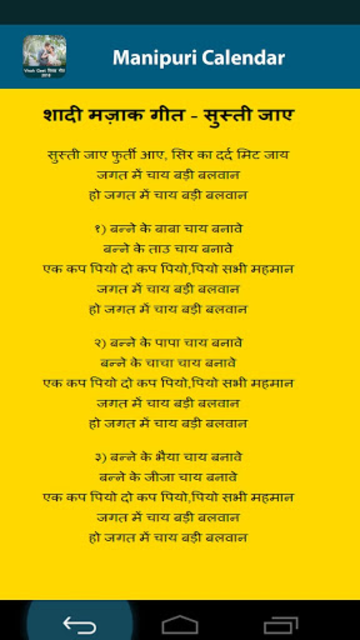 Manipuri Calendar
शादी मज़ाक गीत - सुस्ती जाए
सुस्ती जाए फुर्ती आए, सिर का दर्द मिट जाय
जगत में चाय बड़ी बलवान
हो जगत में चाय बड़ी बलवान
१) बन्ने के बाबा चाय बनावे
बन्ने के ताउ चाय बनावे
एक कप पियो दो कप पियो,पियो सभी महमान
जगत में चाय बड़ी बलवान
हो जगत में चाय बड़ी बलवान
२) बन्ने के पापा चाय बनावे
बन्ने के चाचा चाय बनावे
एक कप पियो दो कप पियो,पियो सभी महमान
जगत में चाय बड़ी बलवान
हो जगत में चाय बड़ी बलवान
३) बन्ने के भैया चाय बनावे
बन्ने के जीजा चाय बनावे
एक कप पियो दो कप पियो,पियो सभी महमान
जगत में चाय बड़ी बलवान
हो जगत में चाय बड़ी बलवान